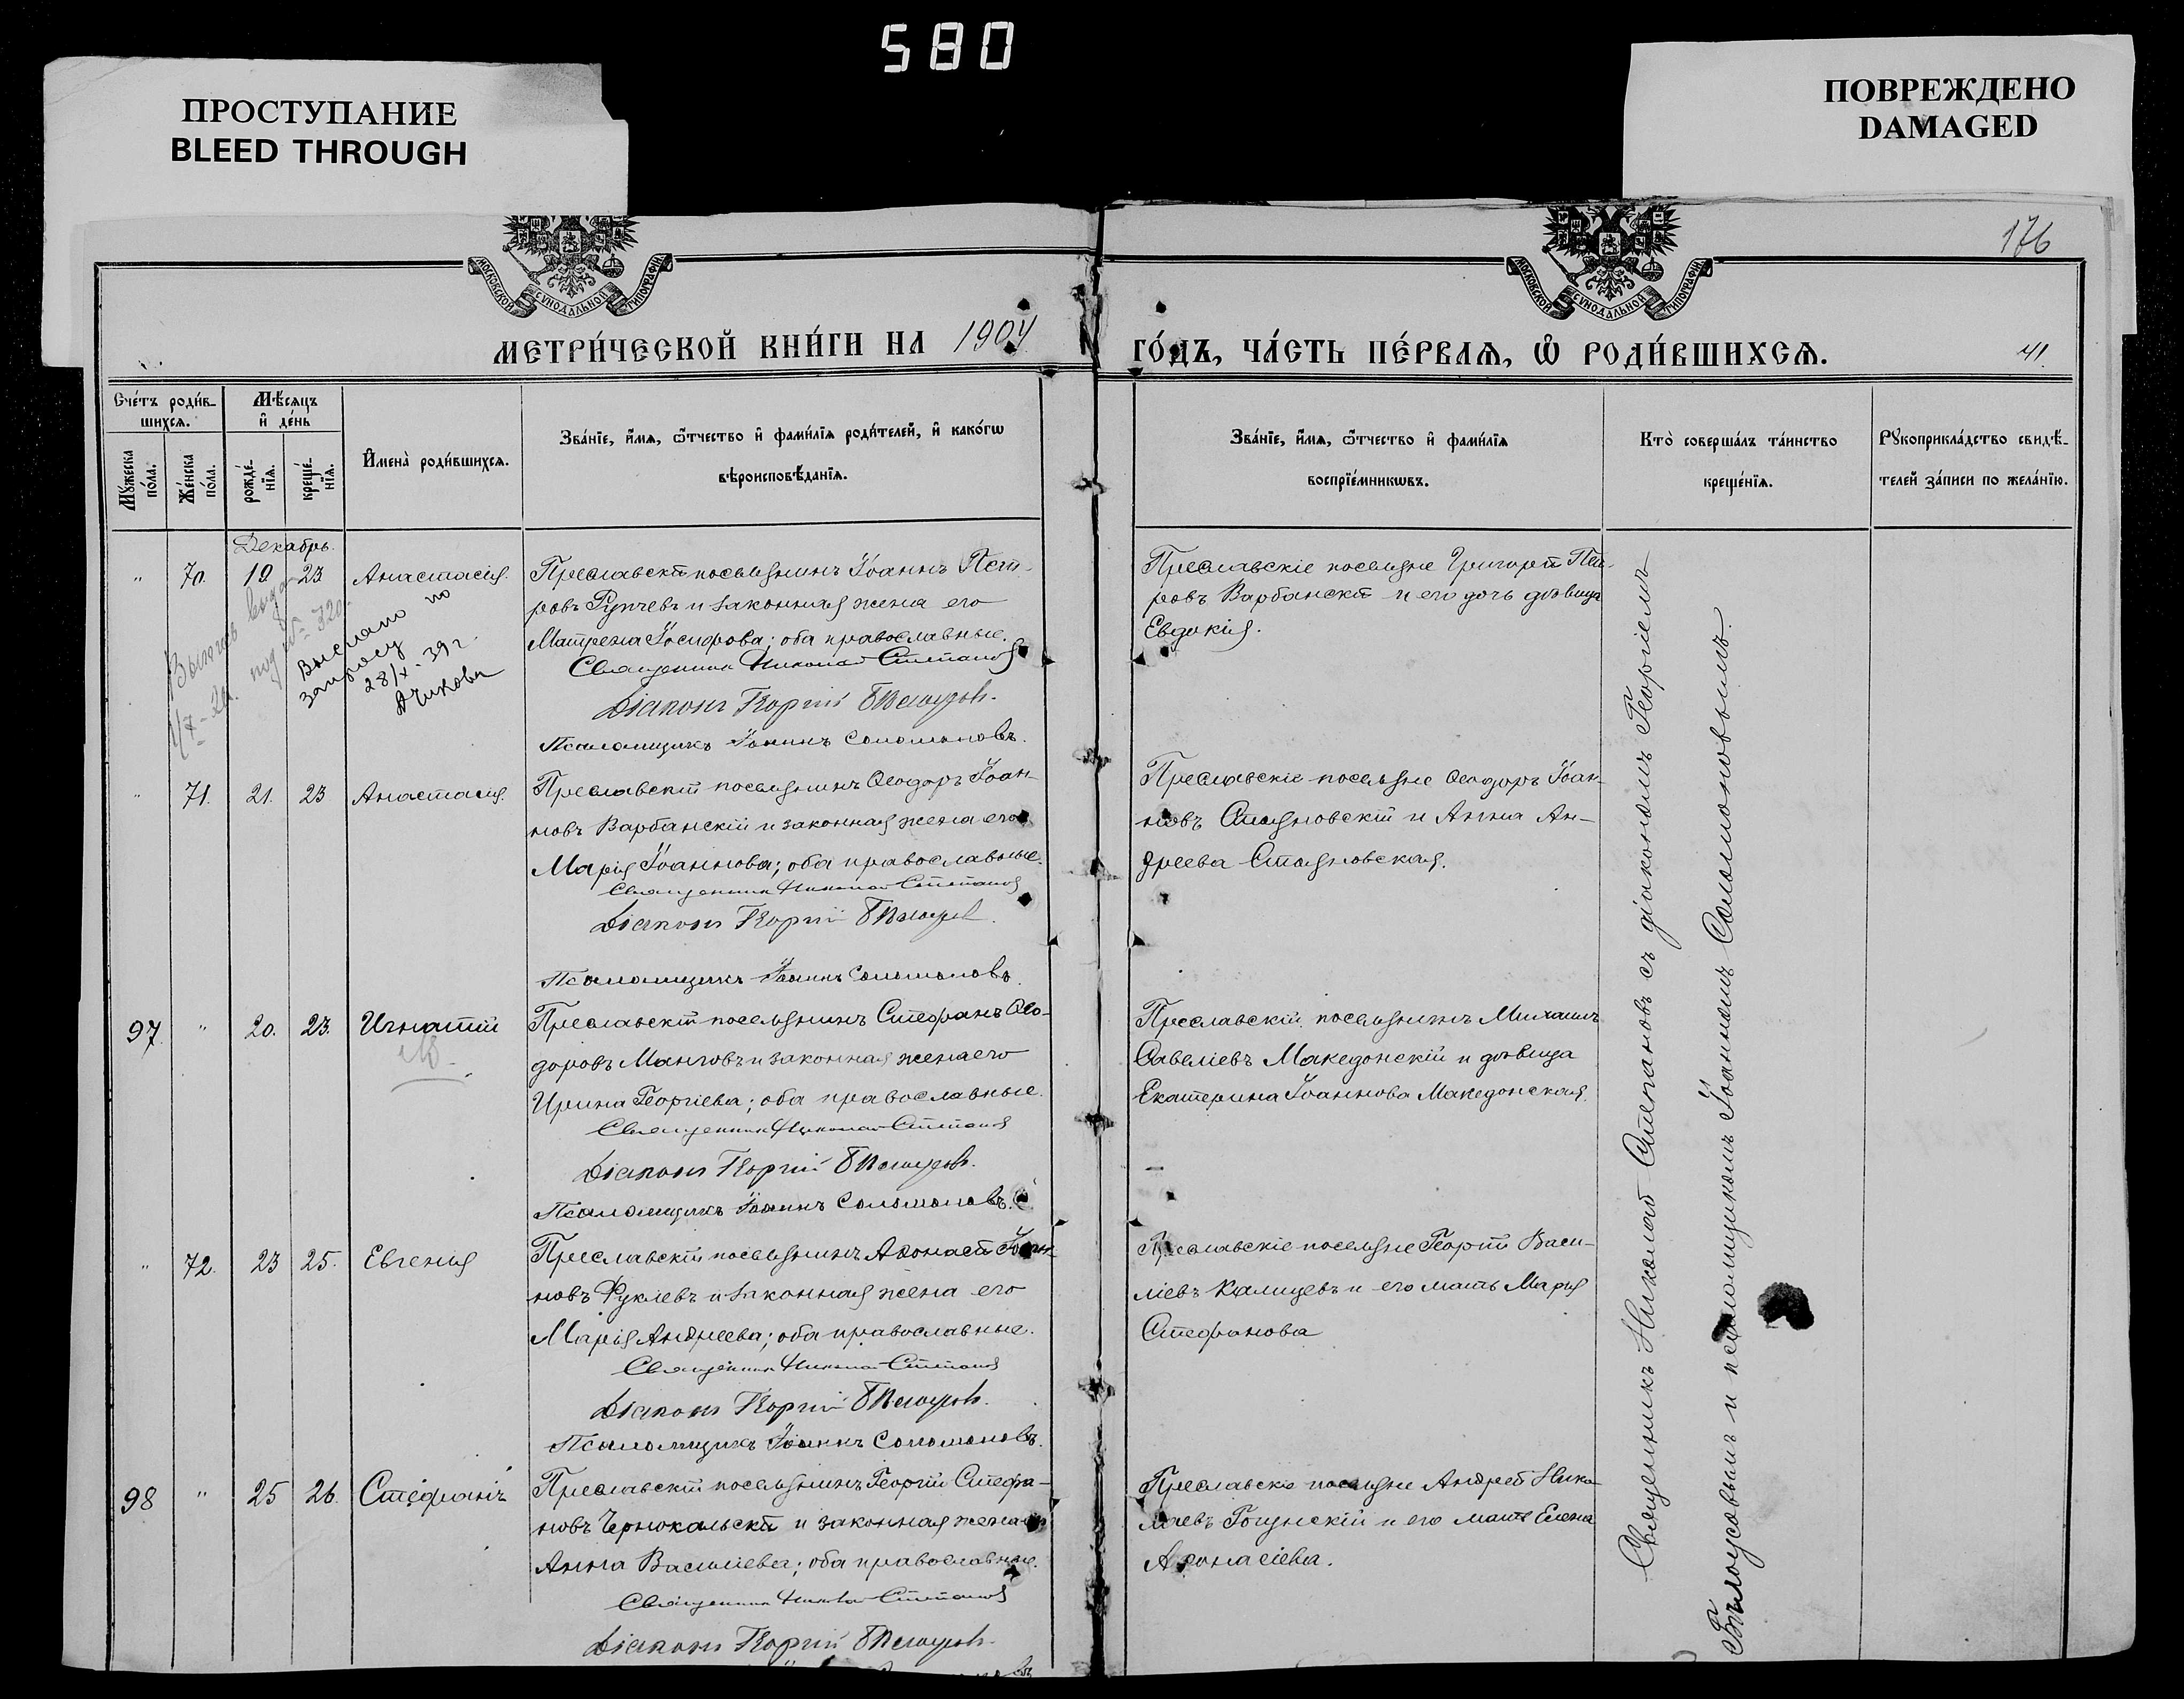 580
ПРОСТУПАНИЕ
BLEED THROUGH
ПОВРЕЖДЕНО
DAMAGED
176
МОСКОВСКОЙ СѴНОДАЛЬНОЙ ТИПОГРАФІИ
МОСКОВСКОЙ СѴНОДАЛЬНОЙ ТИПОГРАФІИ
МЕТРИ́ЧЕСКОЙ КНИ́ГИ НА 1904
ГО́ДЪ, ЧА́СТЬ ПЕ́РВАѦ, Ѽ РОДИ́ВШИХСѦ.
41.
Сче́тъ роди́в-
шихсѧ.
Мꙋ́жеска по́ла.
Же́нска по́ла.
Мѣ́сѧцъ
и҆ де́нь
рожде́-
нїѧ.
креще́-
нїѧ.
И҆мена̀ роди́вшихсѧ.
Зва́нїе, и҆́мѧ, ѻ҆́тчество и҆ фами́лїѧ роди́телей, и҆ како́гѡ
вѣроисповѣ́данїѧ.
Зва́нїе, и҆́мѧ, ѻ҆́тчество и҆ фами́лїѧ
воспрїе́мникѡвъ.
Кто̀ соверша́лъ та́инство
креще́нїѧ.
Рꙋкоприкла́дство свидѣ́-
телей за́писи по жела́нїю.
Декабрь.
" 70. 19 23 Анастасія.
Преславскій поселянинъ Іоаннъ Пет-
ровъ Рупчевъ и законная жена его
Матрена Іосифова; оба православные.
Священникъ Николай Степановъ
Діаконъ Георгій Бѣлоусовъ.
Псаломщикъ Іоаннъ Соломоновъ.
Преславскіе поселяне Григорій Пет-
ровъ Варбанскій и его дочь дѣвица
Евдокія.
под № 320.
Выслано по
запросу
28/X-39 г.
" 71. 21. 23 Анастасія.
Преславскій поселянинъ Ѳеодоръ Іоан-
новъ Варбанскій и законная жена его
Марія Іоаннова; оба православные.
Священникъ Николай Степановъ
Діаконъ Георгій Бѣлоусовъ.
Псаломщикъ Іоаннъ Соломоновъ.
Преславскіе поселяне Ѳеодоръ Іоан-
новъ Стояновскій и Анна Ан-
дреева Стояновская.
97 " 20. 23. Игнатій
Преславскій поселянинъ Стефанъ Ѳео-
доровъ Манговъ и законная жена его
Ирина Георгіева; оба православные.
Священникъ Николай Степановъ
Діаконъ Георгій Бѣлоусовъ.
Псаломщикъ Іоаннъ Соломоновъ.
Преславскій поселянинъ Михаилъ
Савеліевъ Македонскій и дѣвица
Екатерина Іоаннова Македонская.
" 72. 23 25. Евгенія
Преславскій поселянинъ Аѳонасій Іоан-
новъ Руклевъ и законная жена его
Марія Андреева; оба православные.
Священникъ Николай Степановъ
Діаконъ Георгій Бѣлоусовъ.
Псаломщикъ Іоаннъ Соломоновъ.
Преславскіе поселяне Георгій Васи-
ліевъ Калицевъ и его мать Марія
Стефанова
98 " 25 26. Стефанъ
Преславскій поселянинъ Георгій Стефа-
новъ Чернокальскій и законная жена его
Анна Василіева; оба православные.
Священникъ Николай Степановъ
Діаконъ Георгій Бѣлоусовъ.
Преславскіе поселяне Андрей Нико-
лаевъ Гогунскій и его мать Елена
Аѳонасіева.
Священникъ Николай Степановъ съ діакономъ Георгіемъ
Бѣлоусовымъ и псаломщикомъ Іоанномъ Соломоновымъ.